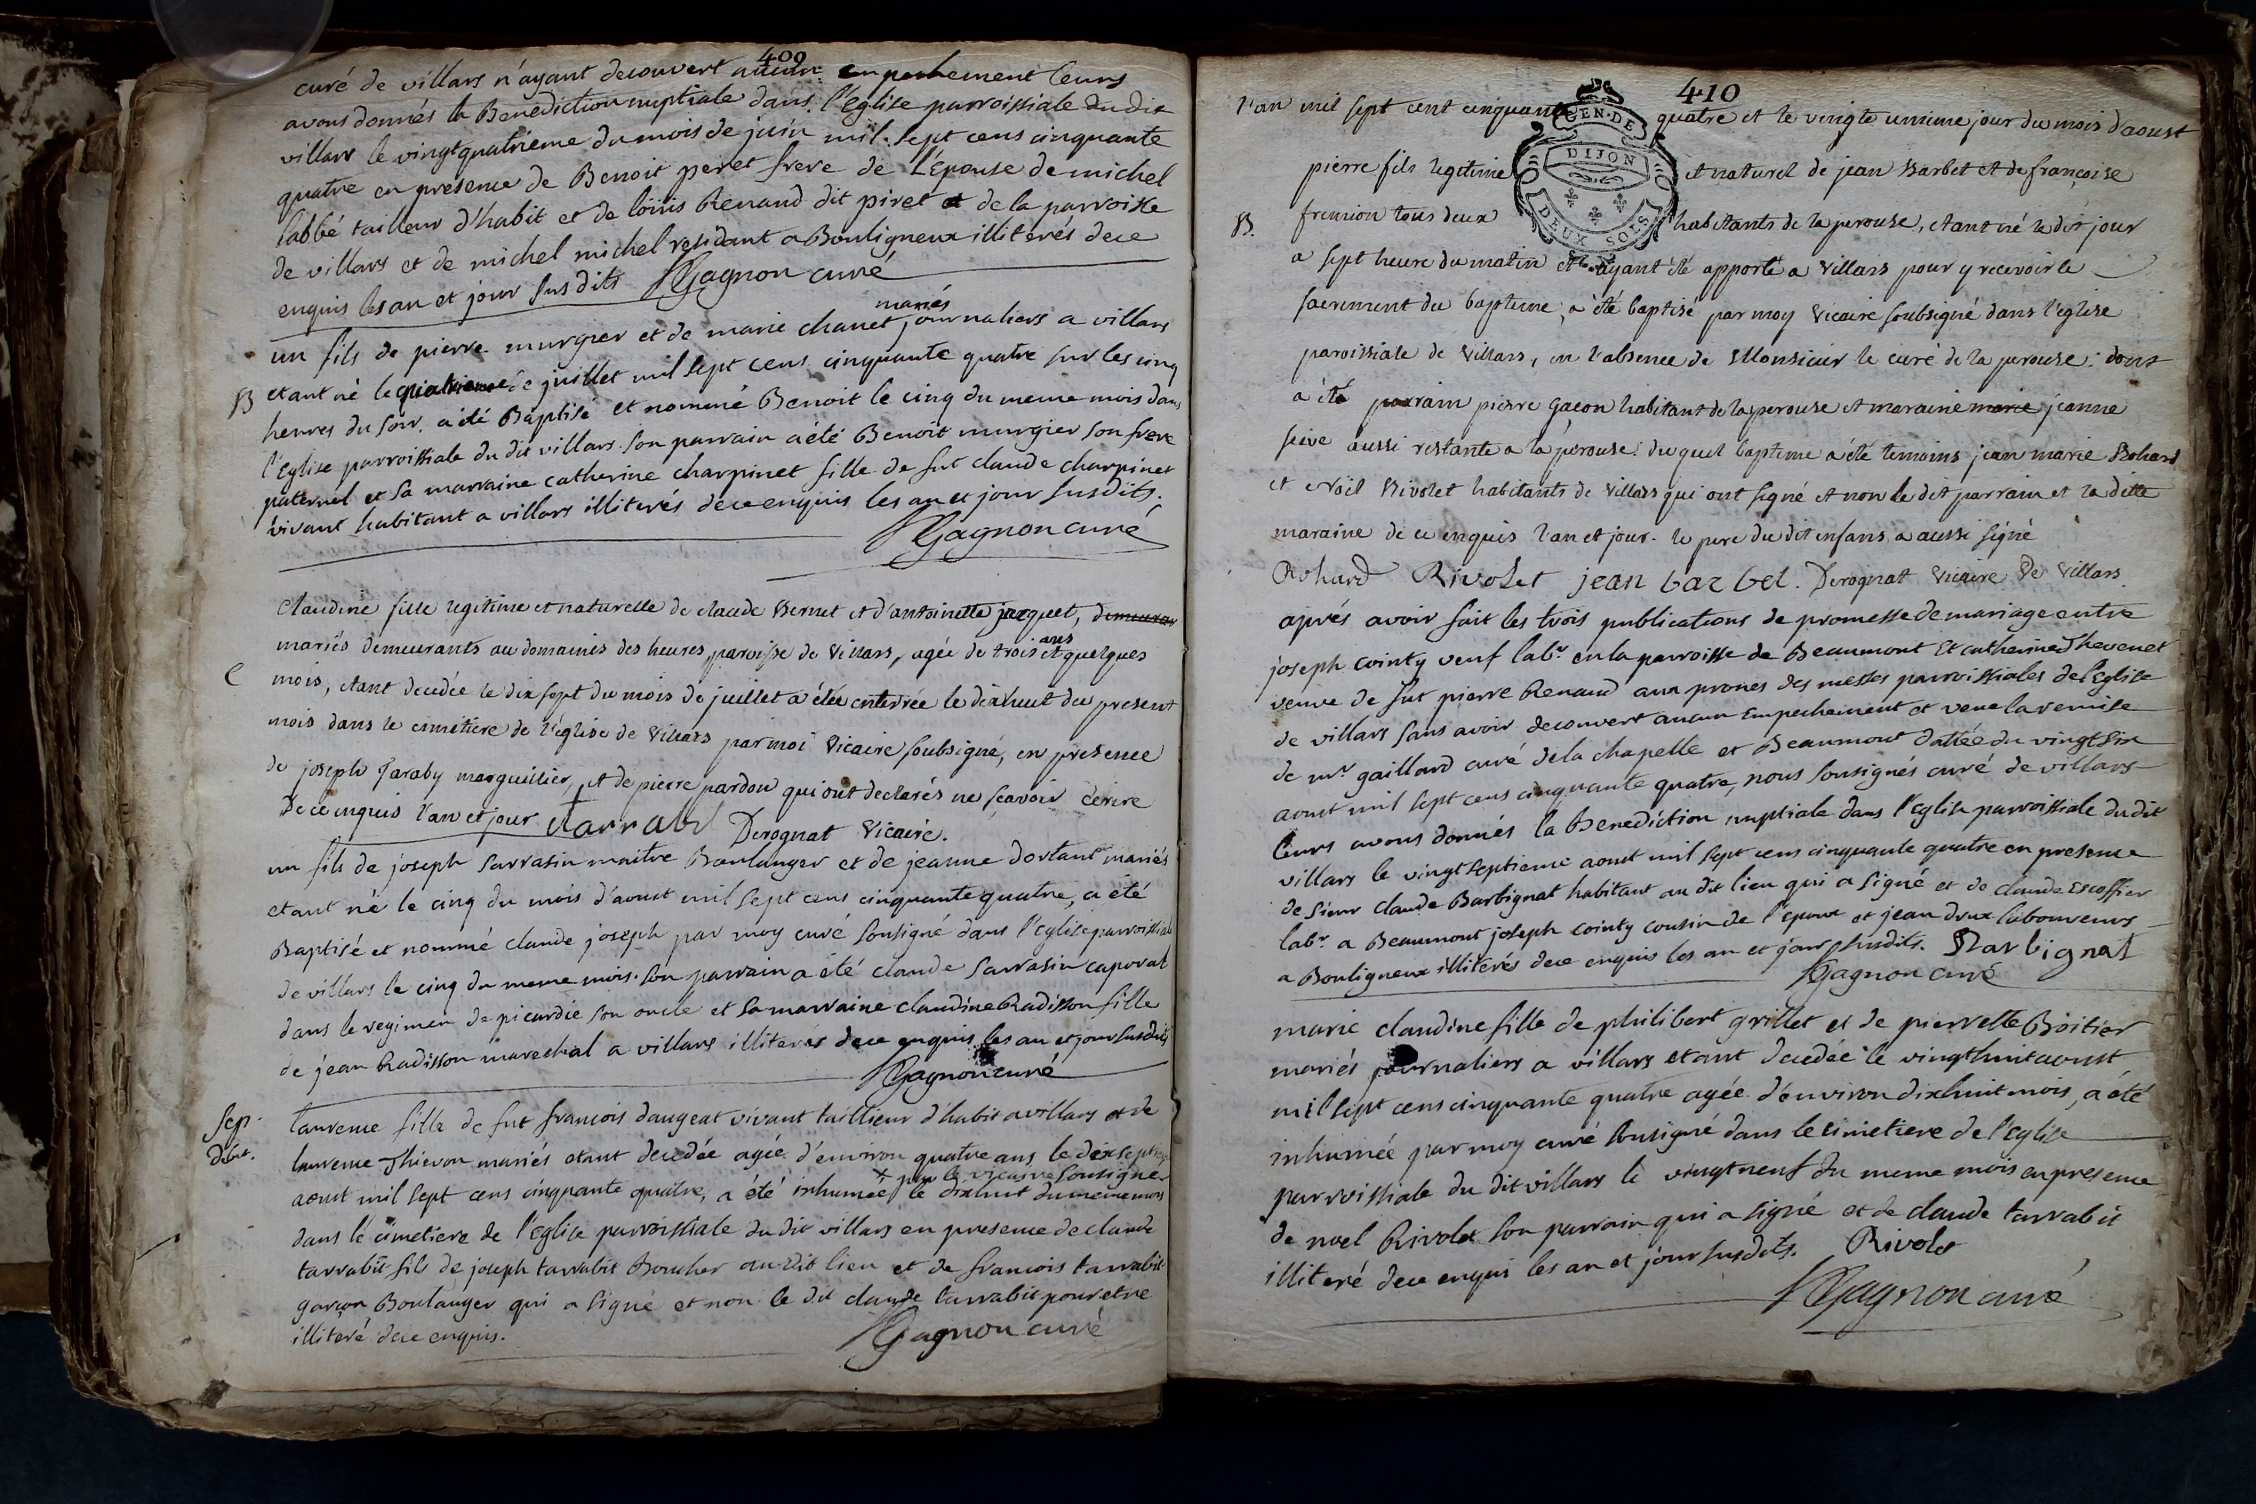 409
curé de villars n'ayant decouvert aucun empechement leurs
avons donnés la Benediction nuptiale dans l'eglise parroissiale du dit
villars le vingtquatrieme du mois de juin mil sept cens cinquante
quatre en presence de Benoit peret frere de l'Epouse de michel
labbé tailleur d'habit et de loüis Renaud dit piret et de la parroisse
de villars et de michel michel residant a Bouligneux illiterés de ce
enquis les an et jour susdits Gagnon curé
mariés
un fils de pierre murgier et de marie chanet journaliers a villars
B etant né le quatrieme de juillet mil sept cens cinquante quatre sur les cinq
heures du soir, a été Baptisé et nommé Benoit le cinq du meme mois dans
l'Eglise parroissiale du dit villars. son parrain a été Benoit murgier son frere
paternel et sa marraine catherine charpinet fille de fut claude charpinet
vivant habitant a villars illiterés de ce enquis les an et jour susdits.
Gagnon curé
Claudine fille legitime et naturelle de claude Bernet et d'antoinette jacquet, demeuran
mariés demeurants au domaines des heures, paroisse de Villars, agée de trois ans et quelques
C mois, etant decedée le dix sept du mois de juillet a été enterrée le dixhuit du present
mois dans le cimetiere de l'église de Villars par moi Vicaire soubsigné, en presence
de joseph Taraby marguilier, et de pierre pardon qui ont declarés ne sçavoir écrire
De ce enquis l'an et jour tarrabi Derognat Vicaire.
un fils de joseph sarrasin maitre Boulanger et de jeanne dortant mariés
etant né le cinq du mois d'aoust mil sept cens cinquante quatre, a été
Baptisé et nommé claude joseph par moy curé sousigné dans l'Eglise parroissiale
de villars le cinq du meme mois. son parrain a été claude sarrasin caporal
dans le regimen de picardie son oncle et sa marraine claudine Radisson fille
de jean Radisson marechal a villars illiterés de ce enquis les an et jour susdits
Gagnon curé
Sep. laurence fille de fut francois daugeat vivant taillieur d'habit a villars et de
laurence Thievon mariés etant decedée agée d'environ quatre ans le dixsept
par le vicaire sousigné
aoust mil sept cens cinquante quatre, a été inhumée le dixhuit du meme mois
dans le cimetiere de l'Eglise parroissiale du dit villars en presence de claude
tarrabit fils de joseph tarrabit Boucher au dit lieu et de francois tarrabit
garçon Boulanger qui a signé et non le dit claude tarrabit pour etre
illiteré de ce enquis. Gagnon curé
410
GEN. DE
DIJON
DEUX SOLS
l'an mil sept cent cinquante quatre et le vingte unieme jour du mois d'aoust
pierre fils legitime et naturel de jean Barbet et de françoise
B. tous deux habitants de la perouse, etant né le dit jour
a sept heure du matin et ayant été apporté a Villars pour y recevoir le
sacrement du bapteme, a été baptisé par moy Vicaire soubsigné dans l'église
paroissiale de Villars, en l'absence de Monsieur le curé de la perouse. dont
a été parrain pierre Gacon habitant de la perouse et maraine marie jeanne
seive aussi restante a la perouse. du quel bapteme a été temoins jean marie Rohard
et Noël Rivolet habitants de Villars qui ont signé et non le dit parrain et la ditte
maraine de ce enquis l'an et jour. le pere du dit enfans a aussi signé
Rohard Rivolet jean barbet. Derognat Vicaire de Villars
aprés avoir fait les trois publications de promesse de mariage entre
joseph cointy veuf labr. en la parroisse de Beaumont Et catherine Thevenet
veuve de fut pierre Renaud aux prones des messes parroissiales de l'Eglise
de villars sans avoir decouvert aucun Empechement et veue la remise
de mr. gaillard curé de la chapelle et Beaumont dattée du vingt six
aoust mil sept cens cinquante quatre, nous sousignés curé de villars
leurs avons donnés la Benediction nuptiale dans l'Eglise parroissiale du dit
villars le vingt septieme aoust mil sept cens cinquante quatre en presence
de sieur claude Barbignat habitant au dit lieu qui a signé et de claude Escoffier
labr. a Beaumont joseph cointy cousin de l'epoux et jean drux laboureurs
a Bouligneux illiterés de ce enquis les an et jour susdits. Barbignat
Gagnon curé
marie claudine fille de philibert grillet et de pierrette Boitier
mariés journaliers a villars etant decedée le vingthuit aoust
mil sept cens cinquante quatre agée d'environ dixhuit mois, a été
inhumée par moy curé sousigné dans le cimetiere de l'Eglise
parroissiale du dit villars le vingtneuf du meme mois en presence
de noel Rivolet son parrain qui a signé et de claude tarrabit
illiteré de ce enquis les an et jour susdits. Rivolet
Gagnon curé